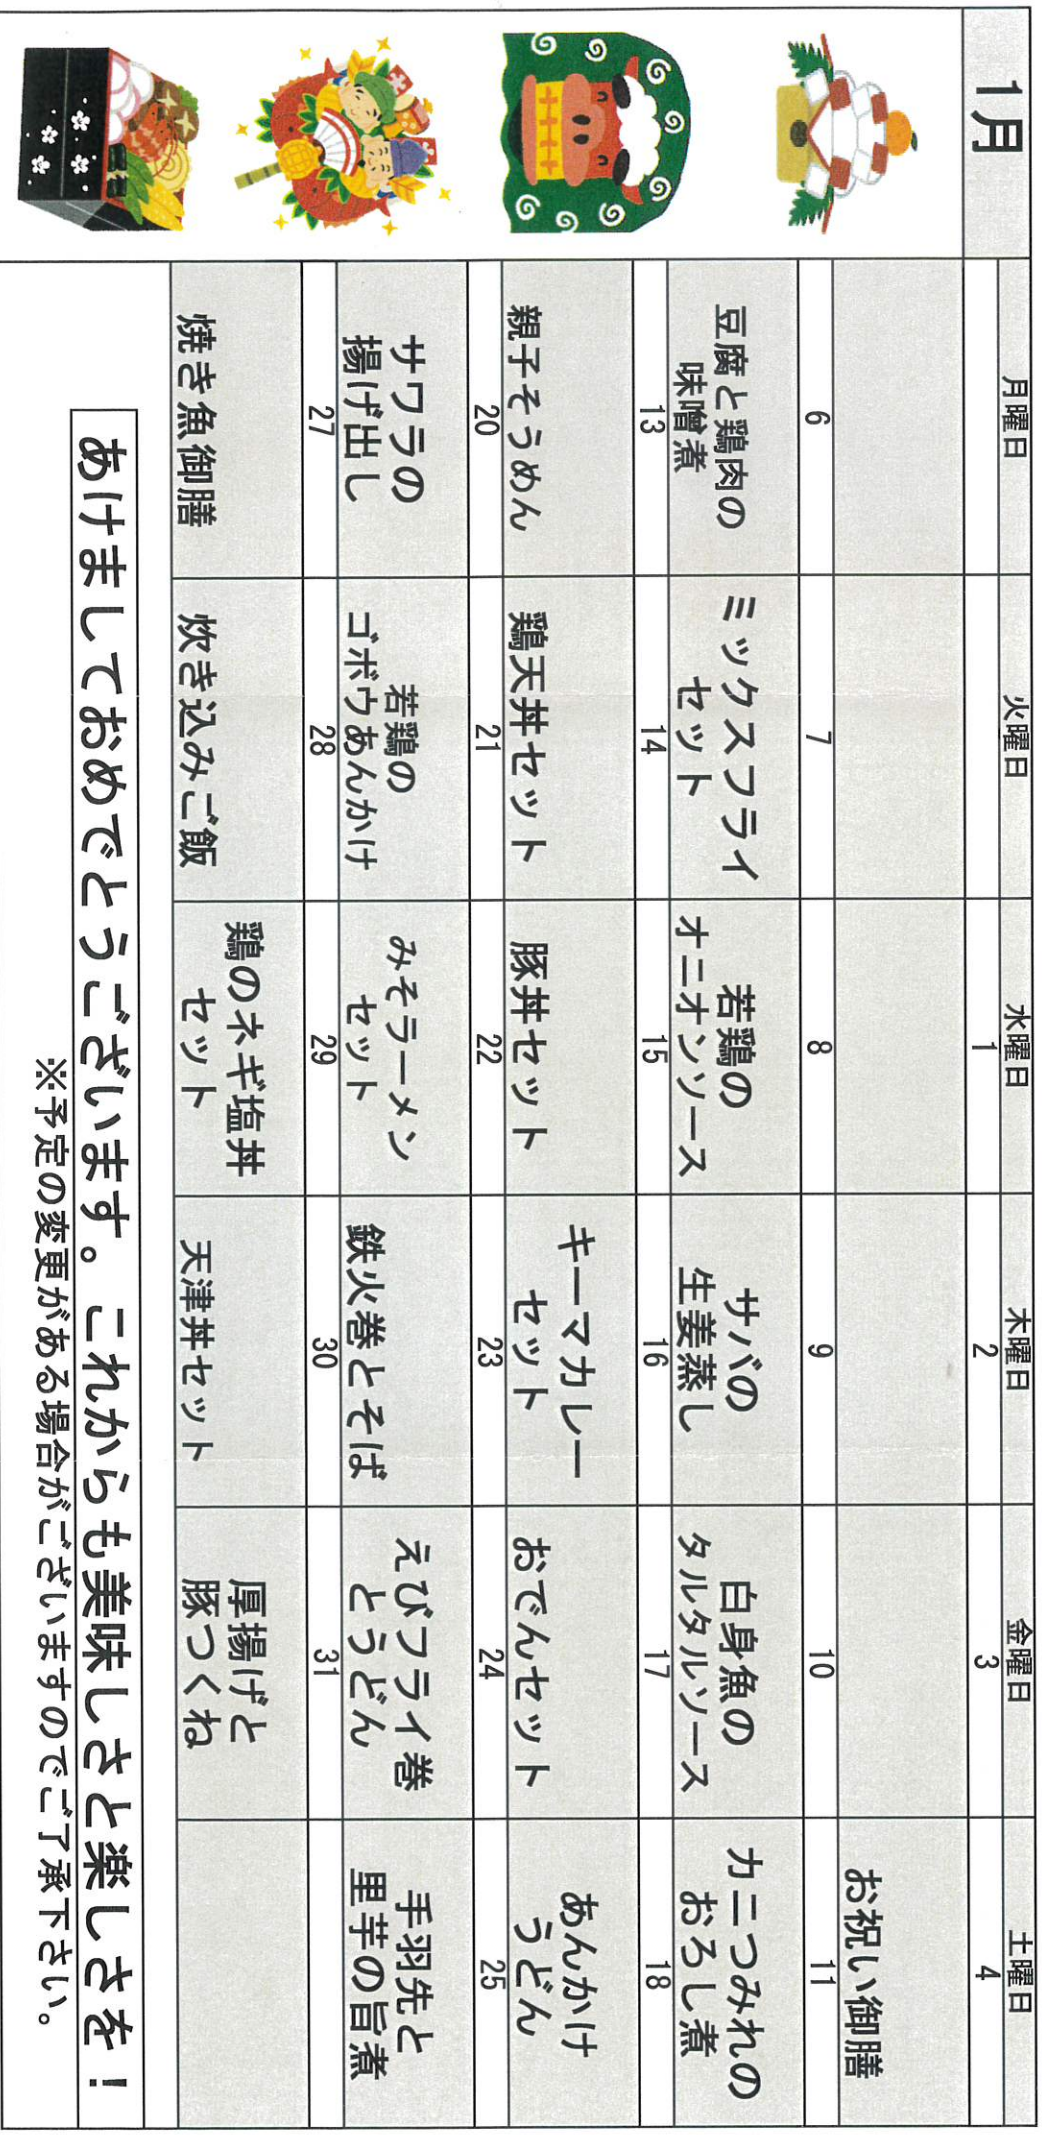 1月
月曜日 火曜日 水曜日 木曜日 金曜日 土曜日
1 2 3 4
お祝い御膳
6 7 8 9 10 11
豆腐と鶏肉の
味噌煮
ミックスフライ
セット
若鶏の
オニオンソース
サバの
生姜蒸し
白身魚の
タルタルソース
カニつみれの
おろし煮
13 14 15 16 17 18
親子そうめん
鶏天丼セット
豚丼セット
キーマカレー
セット
おでんセット
あんかけ
うどん
20 21 22 23 24 25
サワラの
揚げ出し
若鶏の
ゴボウあんかけ
みそラーメン
セット
鉄火巻とそば
えびフライ巻
とうどん
手羽先と
里芋の旨煮
27 28 29 30 31
焼き魚御膳
炊き込みご飯
鶏のネギ塩丼
セット
天津丼セット
厚揚げと
豚つくね
あけましておめでとうございます。これからも美味しさと楽しさを！
※予定の変更がある場合がございますのでご了承下さい。